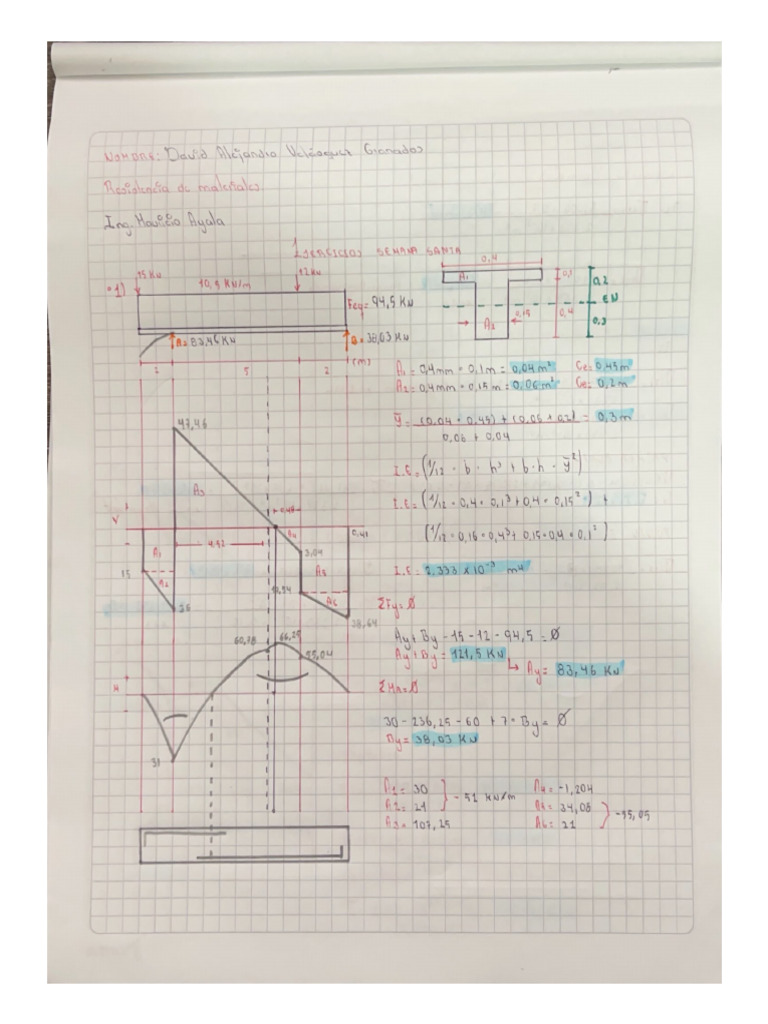 Nombre: David Alejandro Velásquez Granados
Resistencia de materiales
Ing. Mauricio Ayala
EJERCICIOS SEMANA SANTA
•1)
15 KN
10,5 KN/m
12 KN
Feq = 94,5 KN
A = 83,46 KN
B = 38,03 KN
2
5
2
(m)
0,4
A1
0,1
0,2
EN
A2
0,15
0,4
0,3
A1 = 0,4mm * 0,1m = 0,04m²
Ce = 0,45m
A2 = 0,4mm * 0,15m = 0,06m²
Ce = 0,2m
ȳ = (0,04 * 0,45) + (0,06 * 0,2) = 0,3m
0,06 + 0,04
I.E = (1/12 * b * h³ + b * h * ȳ²)
I.E = (1/12 * 0,4 * 0,1³ + 0,4 * 0,15²) +
(1/12 * 0,15 * 0,4³ + 0,15 * 0,4 * 0,1²)
I.E = 2,333 x 10⁻³ m⁴
47,46
A3
V
0,48
4,42
A4
0,41
A1
15
A2
3,04
A5
A6
36
38,64
ΣFy = Ø
Ay + By - 15 - 12 - 94,5 = Ø
Ay + By = 121,5 KN
Ay = 83,46 KN
60,78
66,25
55,04
M
51
ΣMA = Ø
30 - 236,25 - 60 + 7 * By = Ø
By = 38,03 KN
A1 = 30
A2 = 21
- 51 KN/m
A3 = 107,25
A4 = -1,204
= 34,08
A6 = 21
-55,05